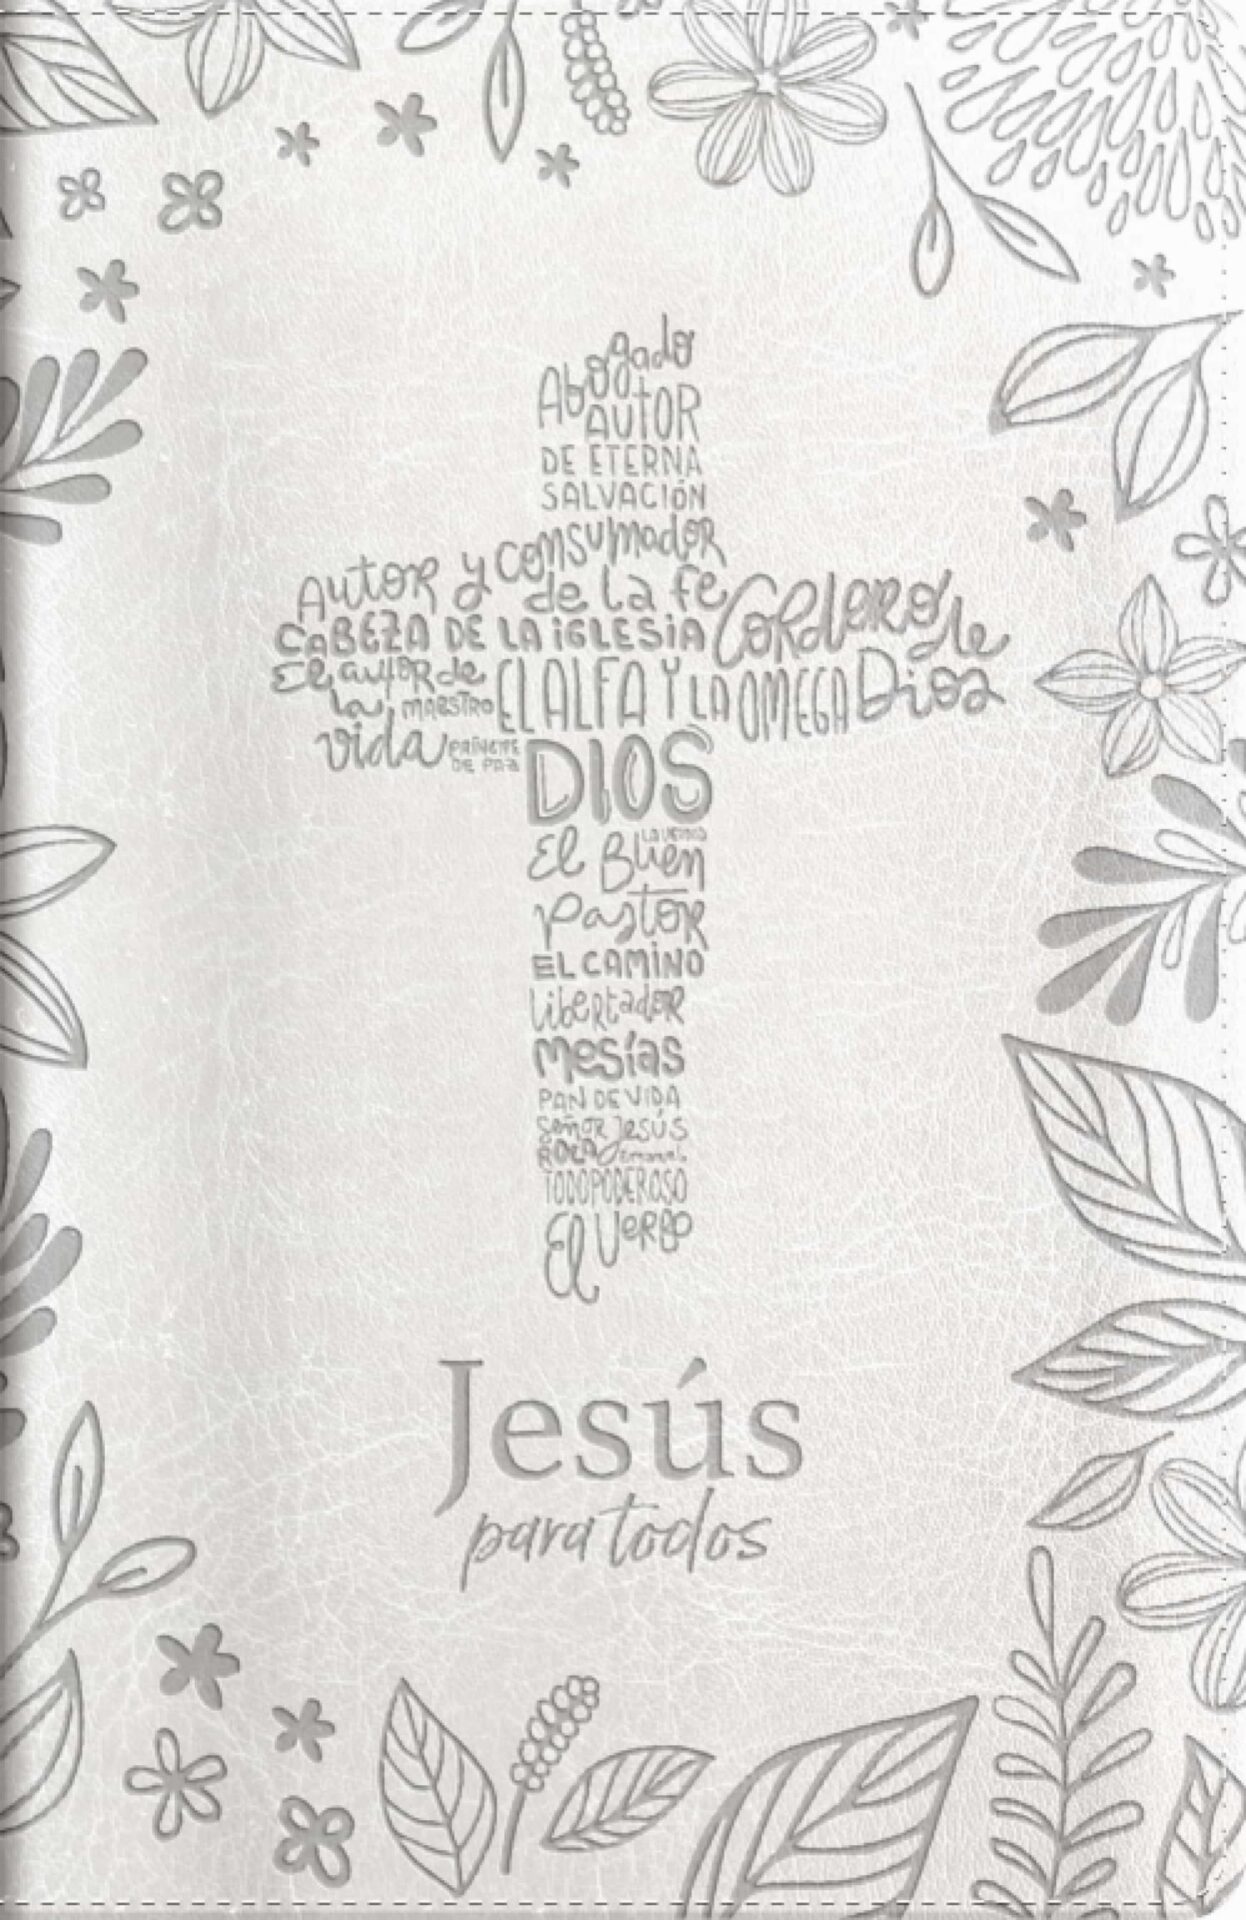 Abogado
AUTOR
DE ETERNA
SALVACIÓN
Autor y consumador
de la fe
CABEZA DE LA IGLESIA
Cordero de
Dios
El autor de
la
vida
MAESTRO
PRÍNCIPE
DE PAZ
EL ALFA Y LA OMEGA
DIOS
El Buen
Pastor
EL CAMINO
Libertador
Mesías
PAN DE VIDA
Señor Jesús
ROCA
TODOPODEROSO
El Verbo
Jesús
para todos